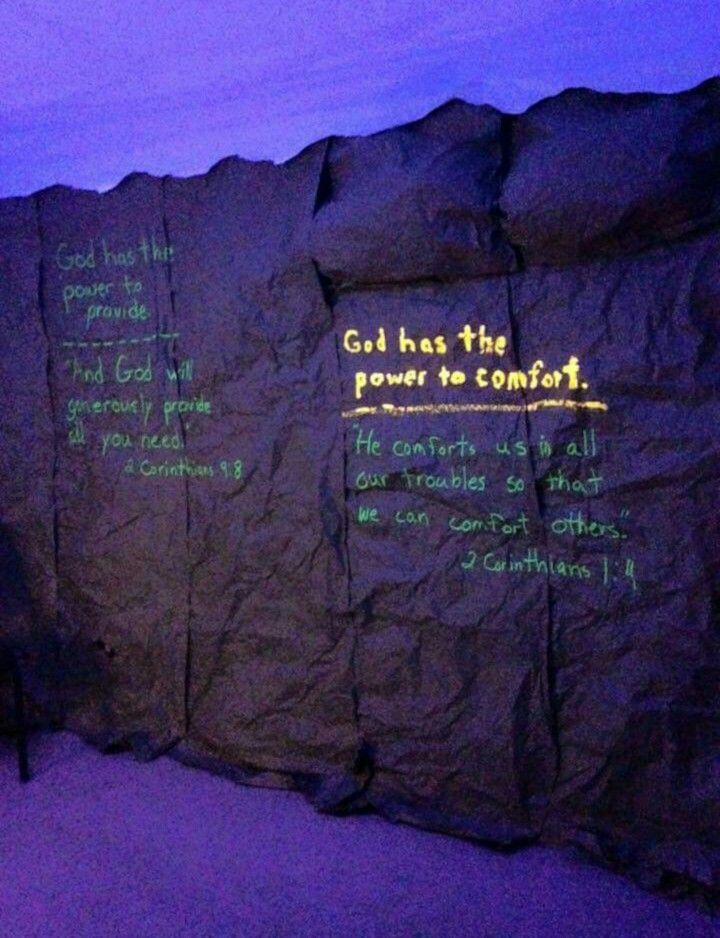 God has the
power to
provide.
"And God will
generously provide
all you need."
2 Corinthians 9:8
God has the
power to comfort.
"He comforts us in all
our troubles so that
we can comfort others."
2 Corinthians 1:4